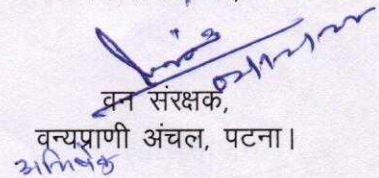 वन संरक्षक,
वन्यप्राणी अंचल, पटना।
अभिषेक